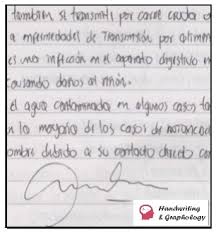 también se transmite por carne cruda o
a enfermedades de transmisión por alimen
es una infección en el aparato digestivo
causando daños al riñón.
el agua contaminada en algunos casos
n la mayoría de los casos de
ombre debido a su contacto directo con
Handwriting
& Graphology